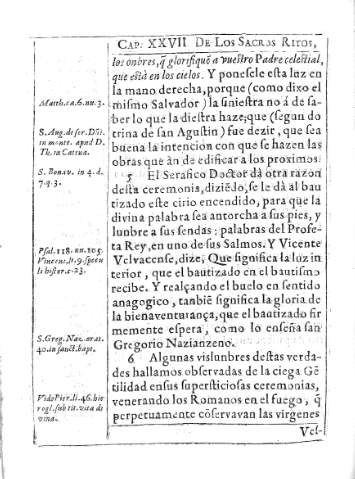 CAP. XXVII DE LOS SACROS RITOS,
los onbres, q̃ glorifiquẽ a vueſtro Padre celeſtial,
que eſtà en los cielos. Y poneſele eſta luz en
la mano derecha, porque (como dixo el
miſmo Salvador) la ſinieſtra no á de ſa-
ber lo que la dieſtra haze; que (ſegun do
trina de san Aguſtin) fue dezir, que sea
buena la intencion con que ſe hazen las
obras que an de edificar a los proximos.
5 El Serafico Doctor dà otra razon
deſta ceremonia, diziẽdo, ſe le dà al bau
tizado eſte cirio encendido, para que la
divina palabra ſea antorcha a ſus pies, y
lunbre a ſus ſendas: palabras del Profe-
ta Rey, en uno de ſus Salmos. Y Vicente
Velvacense, dize, Que ſignifica la luz in
terior, que el bautizado en el bautiſmo
recibe. Y realçando el buelo en ſentido
anagogico, tanbiẽ ſignifica la gloria de
la bienaventurança, que el bautizado fir
memente eſpera, como lo enſeña ſan
Gregorio Nazianzeno.
6 Algunas viſlunbres deſtas verda-
des hallamos obſervadas de la ciega Gẽ
tilidad en ſus ſuperſticioſas ceremonias,
venerando los Romanos en el fuego, q̃
perpetuamente cõſervavan las virgenes
Veſ-
Matth. ca. 6. nu. 3.
S. Aug. de ſer. Dñi.
in monte. apud D.
Th. in Catena.
S. Bonav. in 4. d.
Pſal. 118. nu. 105.
Vincent. li. 9. ſpecu
li hiſtor. c. 23.
S. Greg. Naz. orat.
40. in ſanct. bapt.
Vide Pier. li. 46. hie
rogl. ſub tit. vita di
vina.